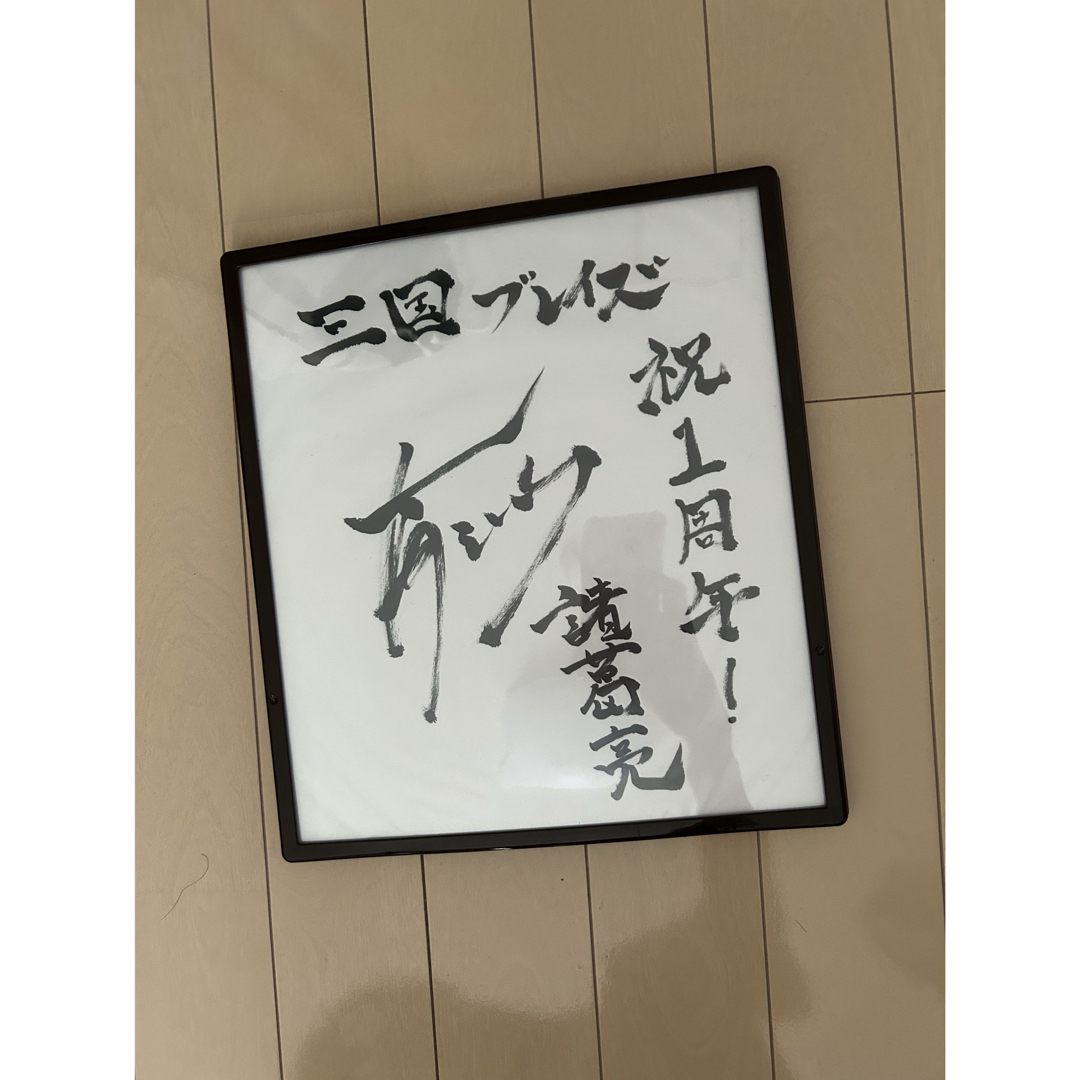 三国ブレイズ
祝1周年!
諸葛亮